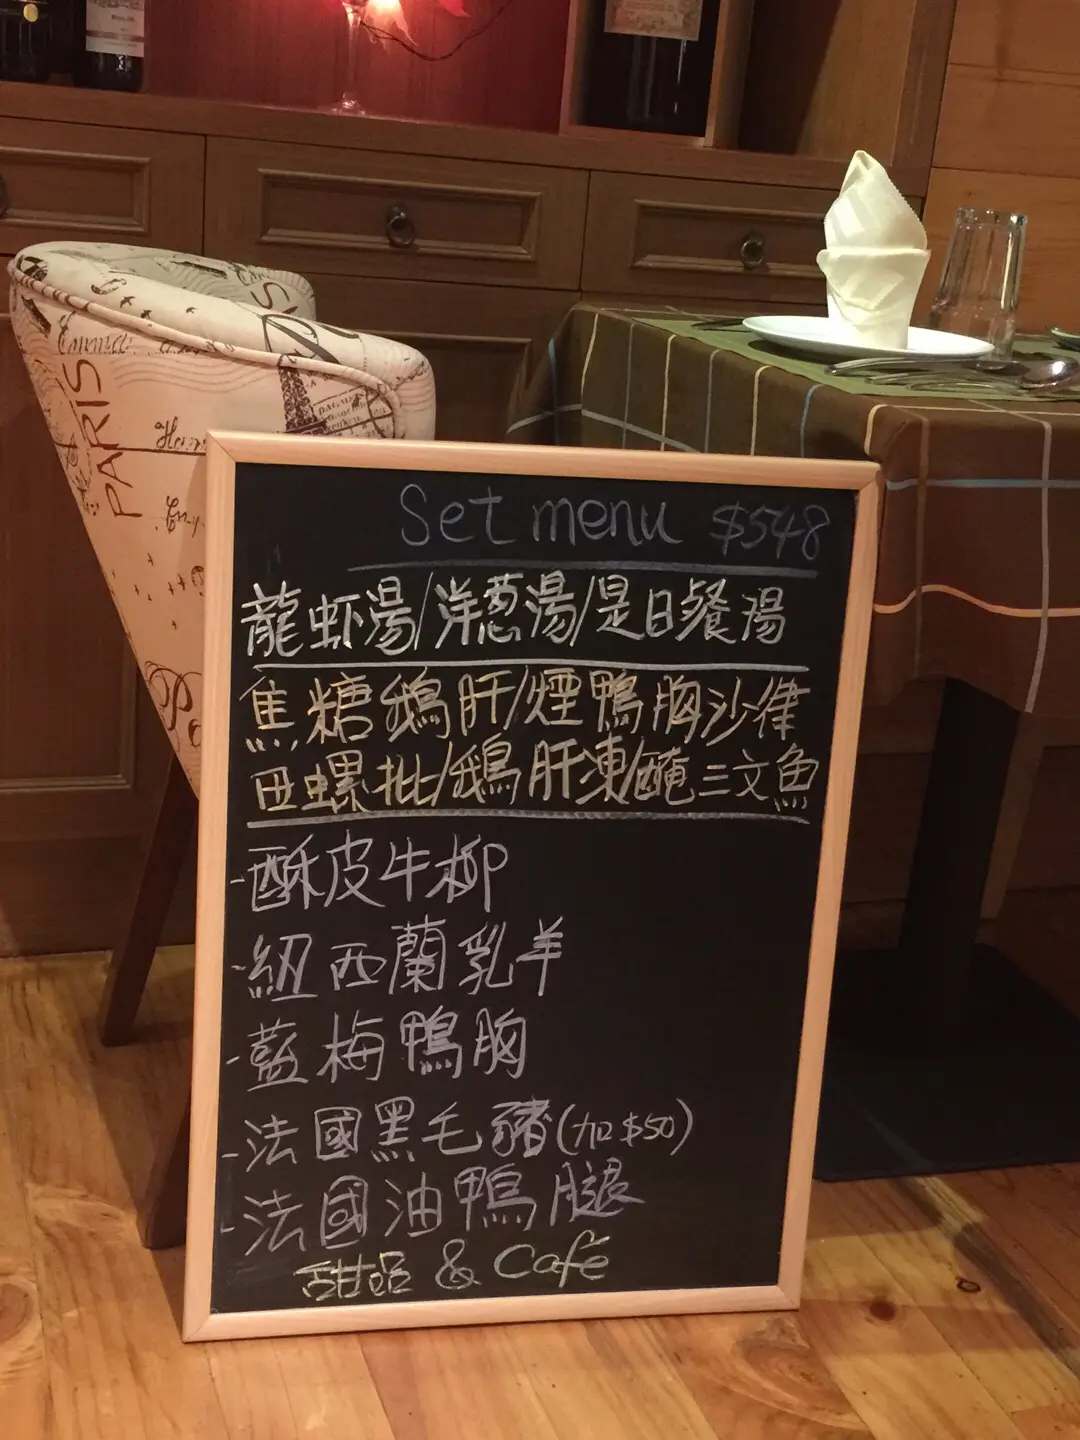 PARIS
Set menu $548
龍虾湯/洋葱湯/是日餐湯
焦糖鵝肝/煙鴨胸沙律
田螺批/鵝肝凍/醃三文魚
-酥皮牛柳
-紐西蘭乳羊
-藍梅鴨胸
-法國黑毛豬(加$50)
-法國油鴨腿
甜品 & Café